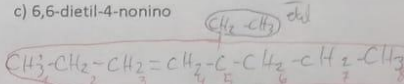 c) 6,6-dietil-4-nonino
CH2-CH3
CH3-CH2-CH2=CH2-C-CH2-CH2-CH3
1 2 3 4 5 6 7 8